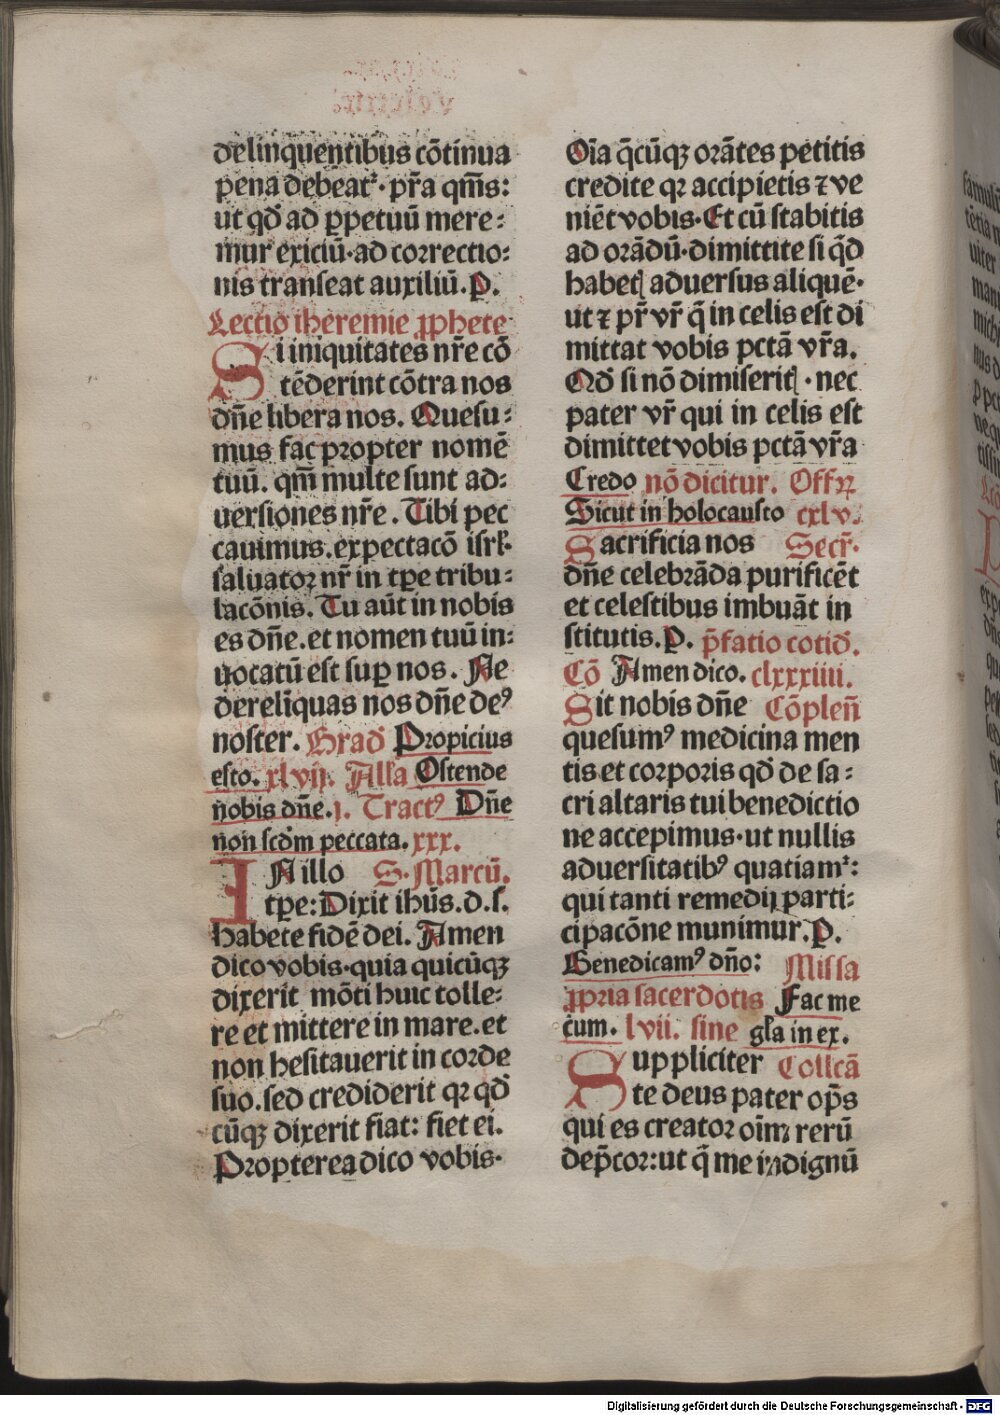 delinquentibus cōtinua
pena debeatᷣ. pr̄a qm̄s:
ut qd̄ ad ꝑpetuū mere⸗
mur exiciū·ad correctio⸗
nis transeat auxiliū. P.
Lectio iheremie ꝓphete
Si iniquitates nr̄e cō
tēderint cōtra nos
dn̄e libera nos. Quesu⸗
mus fac propter nomē
tuū. qm̄ multe sunt ad⸗
uersiones nr̄e. Tibi pec
cauimus. expectacō isrl̄.
saluator nr̄ in tꝑe tribu⸗
lacōnis. Tu aūt in nobis
es dn̄e. et nomen tuū in⸗
uocatū est suꝑ nos. Ne
derelīquas nos dn̄e deꝰ
noster. Grad̄ Propicius
esto. xlvij. Allā Ostende
nobis dn̄e. j. Tractꝰ Dn̄e
non scd̄m peccata. xxx.
IN illo S. Marcū.
tꝑe: Dixit ihūs. d. s.
habete fidē dei. Amen
dico vobis·quia quicūqꝫ
dixerit mōti huic tolle⸗
re et mittere in mare. et
non hesitauerit in corde
suo. sed crediderit qꝛ qd̄
cūqꝫ dixerit fiat: fiet ei.
Propterea dico vobis·
Oīa q̄cūqꝫ orātes petitis
credite qꝛ accipietis ⁊ ve
niēt vobis. Et cū stabitis
ad orādū·dimittite si q̄d
habetꝭ aduersus aliquē·
ut ⁊ pr̄ vr̄ q̄ in celis est di
mittat vobis pctā vr̄a.
Qd̄ si nō dimiseritꝭ · nec
pater vr̄ qui in celis est
dimittet vobis pctā vr̄a
Credo nō dicitur. Offꝝ
Sicut in holocausto cxlv.
Sacrificia nos Secr̄.
dn̄e celebrāda purificēt
et celestibus imbuāt in
stitutis. P. p̄fatio cotid̄.
Cō Amen dico. clxxxiiii.
Sit nobis dn̄e Cōplen̄
quesumꝰ medicina men
tis et corporis qd̄ de sa⸗
cri altaris tui benedictio
ne accepimus·ut nullis
aduersitatibꝰ quatiamᷣ:
qui tanti remedij parti⸗
cipacōne munimur. P.
Benedicamꝰ dn̄o: Missa
ꝓpria sacerdotis Fac me
cum. lvii. sine gl̄a in ex.
Suppliciter Collcā
te deus pater op̄s
qui es creator oīm rerū
dep̄cor: ut q̄ me indignū
Digitalisierung gefördert durch die Deutsche Forschungsgemeinschaft - DFG